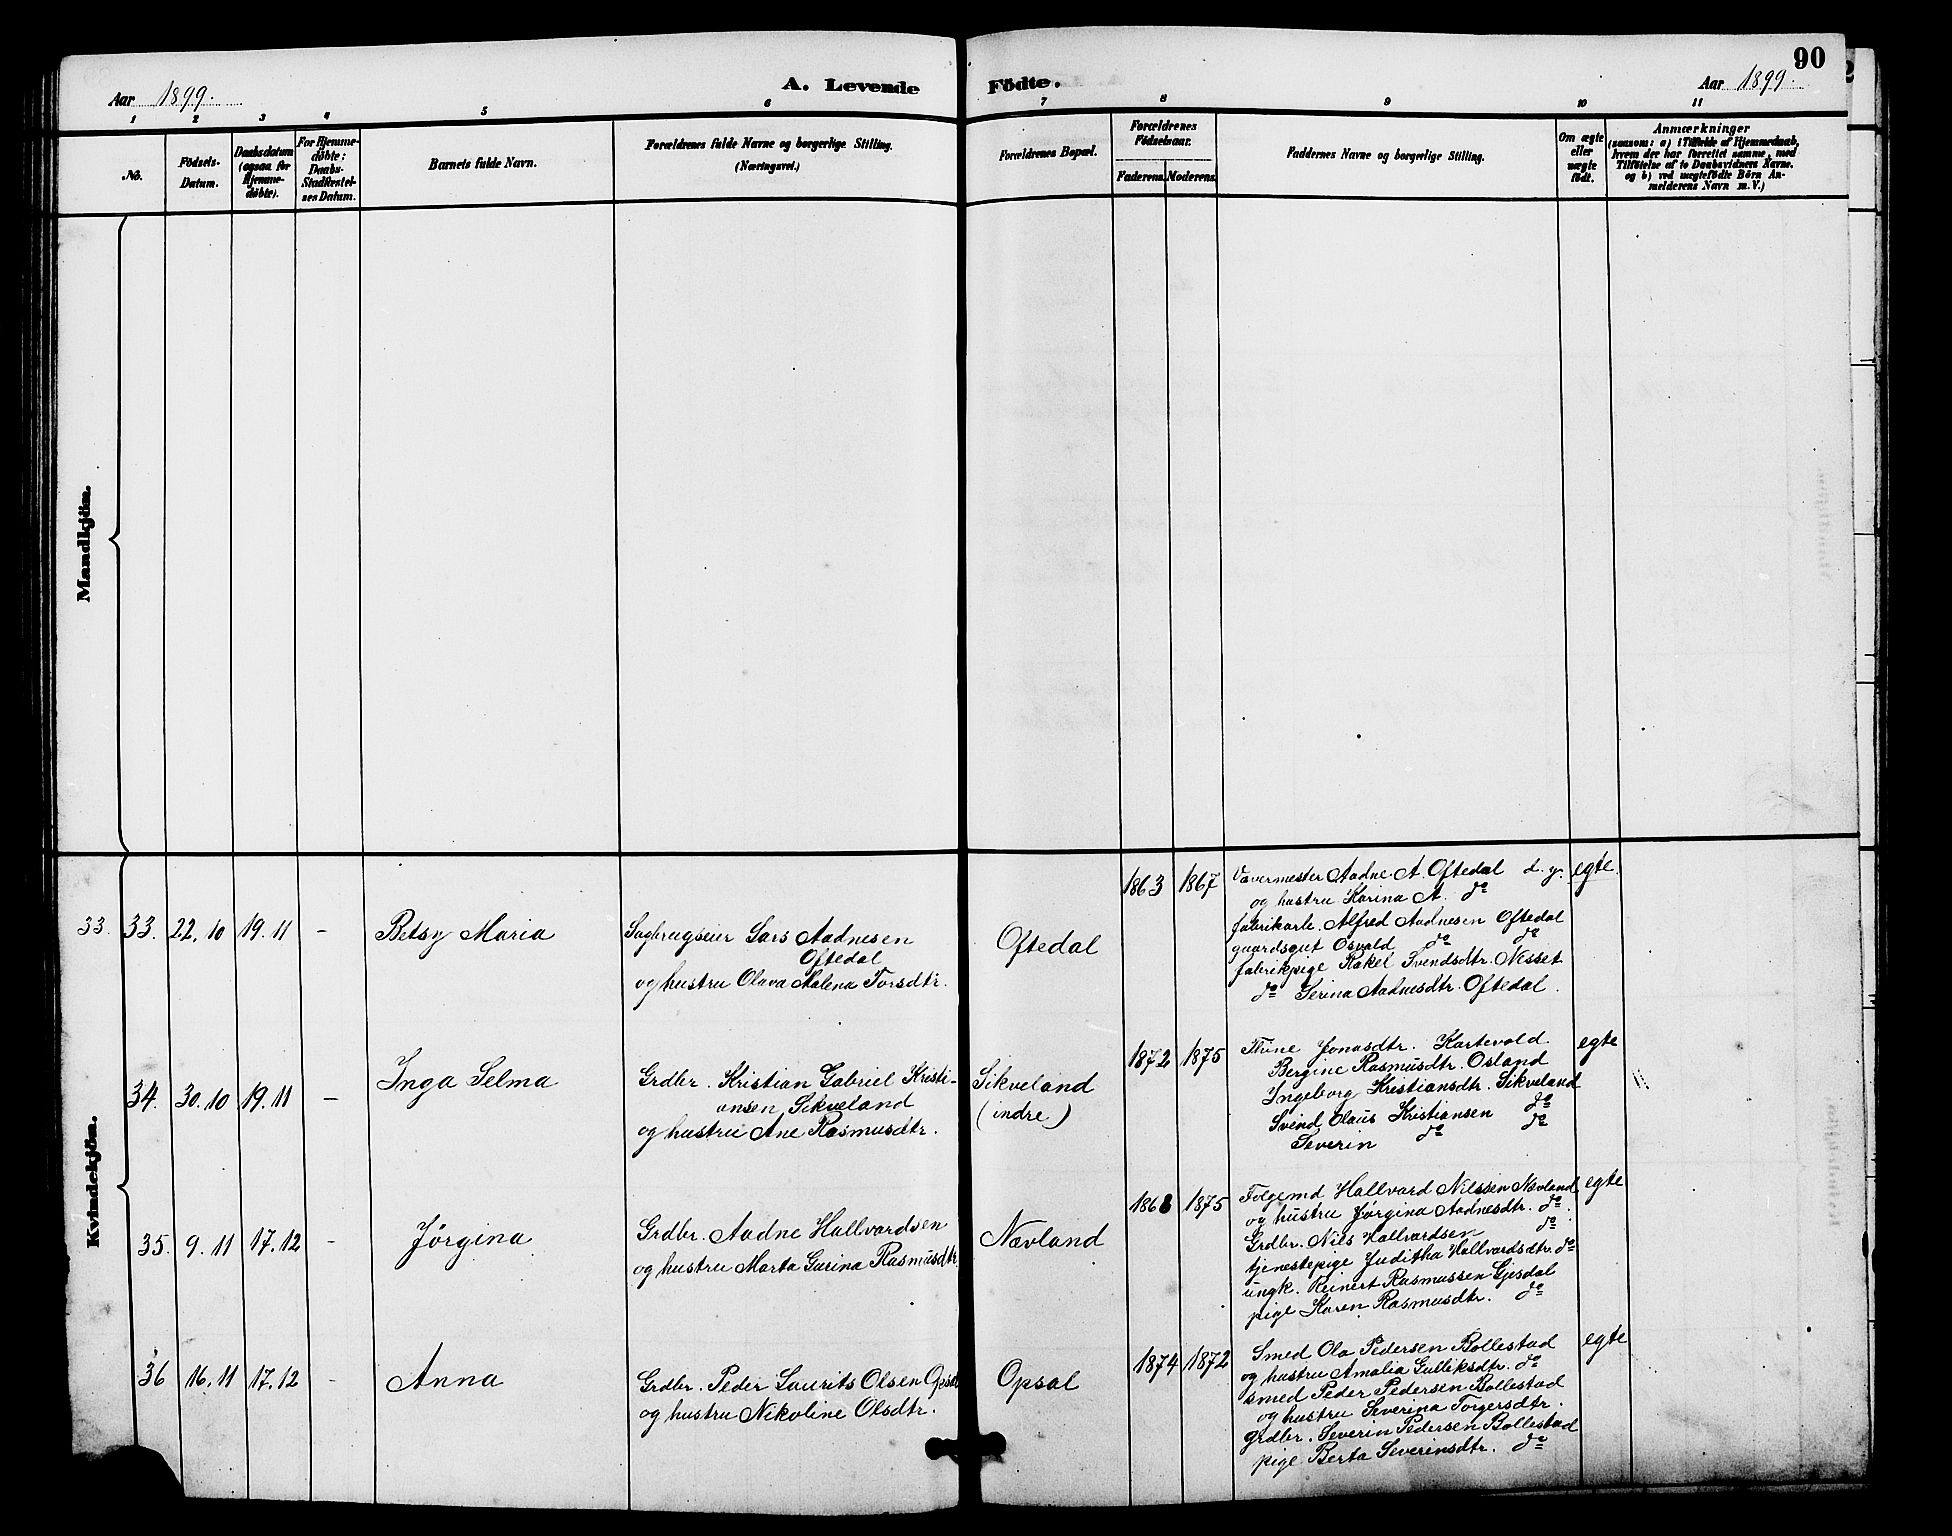 90
Aar 1899.
A. Levende Födte.
Aar 1899.
1 2 3 4 5 6 7 8 9 10 11
No.
Födsels-
Datum.
Daabsdatum
(ogsaa for
Hjemme-
döbte).
For Hjemme-
döbte:
Daabs-
Stadfæstel-
ses Datum.
Barnets fulde Navn.
Forældrenes fulde Navne og borgerlige Stilling.
(Næringsvei.)
Forældrenes Bopæl.
Forældrenes
Födselsaar.
Faderens. Moderens.
Faddernes Navne og borgerlige Stilling.
Om ægte
eller
uægte
födt.
Anmærkninger
(saasom: a) i Tilfælde af Hjemmedaab,
hvem der har forrettet samme, med
Tilföielse af to Daabsvidners Navne.
og b) ved uægtefödte Börn An-
melderens Navn m. V.)
Mandkjön.
Kvindekjön.
33. 33. 22.10 19.11 –
Betsy Maria
Sagbrugseier Lars Aadnesen
Oftedal
og hustru Olava Malena Torsdtr.
Oftedal
1863 1867
Vævermester Aadne A. Oftedal d. y.
og hustru Karina A. do
fabrikarb. Alfred Aadnesen Oftedal
gaardsgut Osvald do do
fabrikpige Rakel Svendsdtr. Nesset
do Serina Aadnesdtr. Oftedal.
egte.
34. 30.10 19.11 –
Inga Selma
Grdbr. Kristian Gabriel Kristi-
ansen Sikveland
og hustru Ane Rasmusdtr.
Sikveland
(indre)
1872 1875
Thine Jonasdtr. Kartevold
Bergine Rasmusdtr. Osland
Ingeborg Kristiansdtr. Sikveland
Svend Olaus Kristiansen do
Severin do do
egte
35. 9.11 17.12 –
Jørgina
Grdbr. Aadne Hallvardsen
og hustru Marta Gurina Rasmusdtr.
Nævland
1868 1875
Folgemd Hallvard Nilssen Nævland
og hustru Jørgina Aadnesdtr. do.
Grdbr. Nils Hallvardsen do
tjenestepige Juditha Hallvardsdtr. do
ungk. Reinert Rasmussen Gjesdal
pige Karen Rasmusdtr. do
egte
36 16.11 17.12 –
Anna
Grdbr. Peder Laurits Olsen Opsal
og hustru Nikoline Olsdtr.
Opsal
1874 1872
Smed Ola Pedersen Bollestad
og hustru Amalia Gulliksdtr. do
smed Peder Pedersen Bollestad
og hustru Severina Torgersdtr.
grdbr. Severin Pedersen Bollestad
pige Berta Severinsdtr. do
egte